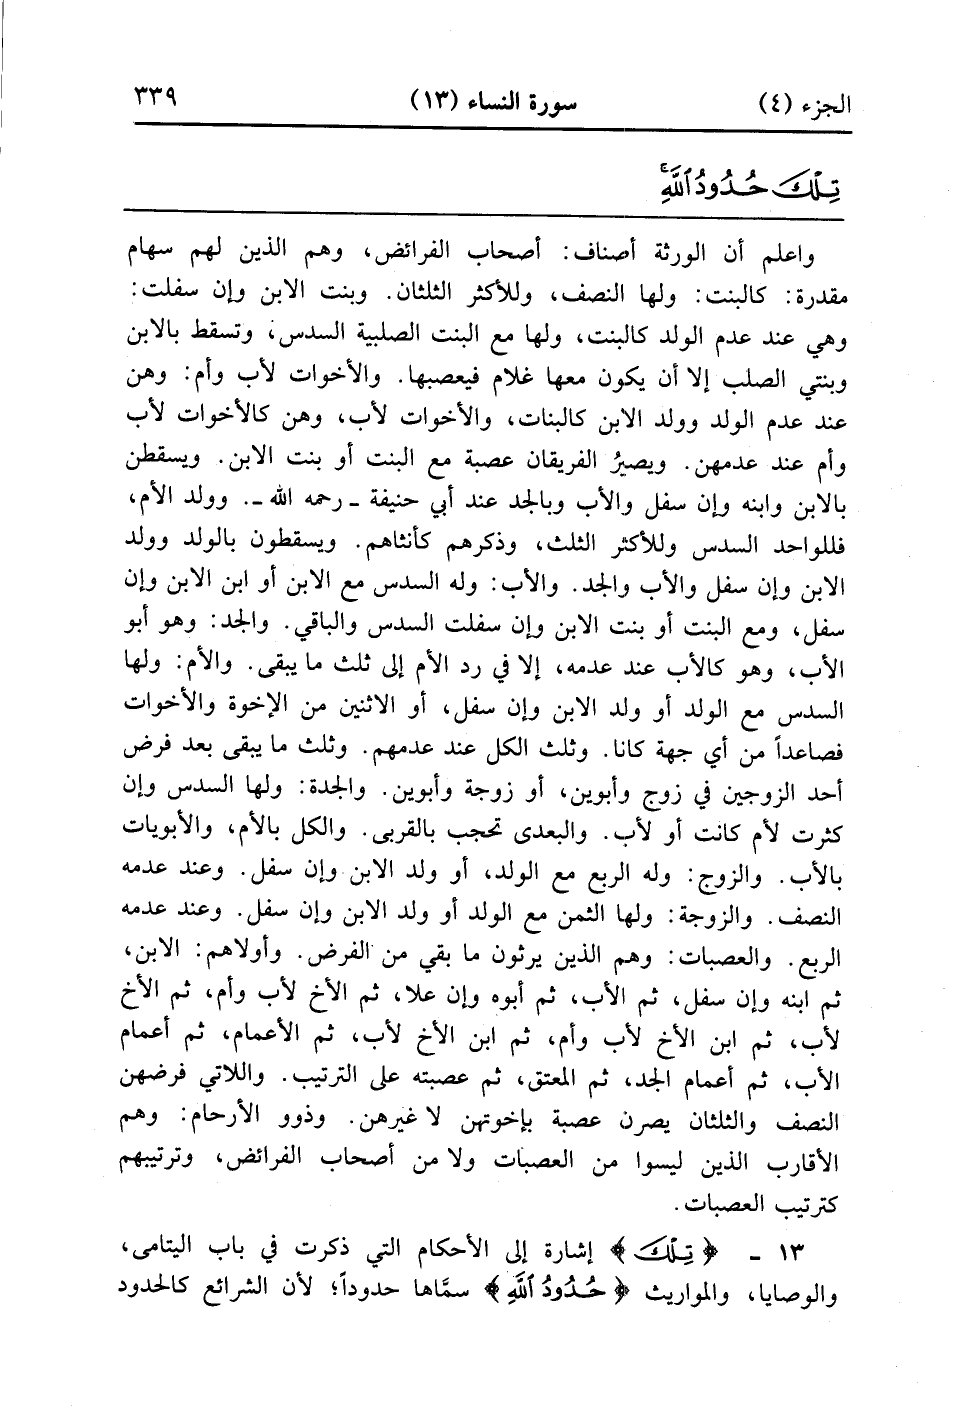 الجزء (٤) سورة النساء (١٣) ٣٣٩
تِلْكَ حُدُودُ ٱللَّهِۚ
واعلم أن الورثة أصناف: أصحاب الفرائض، وهم الذين لهم سهام
مقدرة: كالبنت: ولها النصف، وللأكثر الثلثان. وبنت الابن وإن سفلت:
وهي عند عدم الولد كالبنت، ولها مع البنت الصلبية السدس، وتسقط بالابن
وبنتي الصلب إلا أن يكون معها غلام فيعصبها. والأخوات لأب وأم: وهن
عند عدم الولد وولد الابن كالبنات، والأخوات لأب، وهن كالأخوات لأب
وأم عند عدمهن. ويصيرُ الفريقان عصبة مع البنت أو بنت الابن. ويسقطن
بالابن وابنه وإن سفل والأب وبالجد عند أبي حنيفة ـ رحمه الله ـ. وولد الأم،
فللواحد السدس وللأكثر الثلث، وذكرهم كأنثاهم. ويسقطون بالولد وولد
الابن وإن سفل والأب والجد. والأب: وله السدس مع الابن أو ابن الابن وإن
سفل، ومع البنت أو بنت الابن وإن سفلت السدس والباقي. والجد: وهو أبو
الأب، وهو كالأب عند عدمه، إلا في رد الأم إلى ثلث ما يبقى. والأم: ولها
السدس مع الولد أو ولد الابن وإن سفل، أو الاثنين من الإخوة والأخوات
فصاعداً من أي جهة كانا. وثلث الكل عند عدمهم. وثلث ما يبقى بعد فرض
أحد الزوجين في زوج وأبوين، أو زوجة وأبوين. والجدة: ولها السدس وإن
كثرت لأم كانت أو لأب. والبعدى تحجب بالقربى. والكل بالأم، والأبويات
بالأب. والزوج: وله الربع مع الولد، أو ولد الابن وإن سفل. وعند عدمه
النصف. والزوجة: ولها الثمن مع الولد أو ولد الابن وإن سفل. وعند عدمه
الربع. والعصبات: وهم الذين يرثون ما بقي من الفرض. وأولاهم: الابن،
ثم ابنه وإن سفل، ثم الأب، ثم أبوه وإن علا، ثم الأخ لأب وأم، ثم الأخ
لأب، ثم ابن الأخ لأب وأم، ثم ابن الأخ لأب، ثم الأعمام، ثم أعمام
الأب، ثم أعمام الجد، ثم المعتق، ثم عصبته على الترتيب. واللاتي فرضهن
النصف والثلثان يصرن عصبة بإخوتهن لا غيرهن. وذوو الأرحام: وهم
الأقارب الذين ليسوا من العصبات ولا من أصحاب الفرائض، وترتيبهم
كترتيب العصبات.
١٣ ـ ﴿تِلْكَ﴾ إشارة إلى الأحكام التي ذكرت في باب اليتامى،
والوصايا، والمواريث ﴿حُدُودُ ٱللَّهِ﴾ سمَّاها حدوداً؛ لأن الشرائع كالحدود